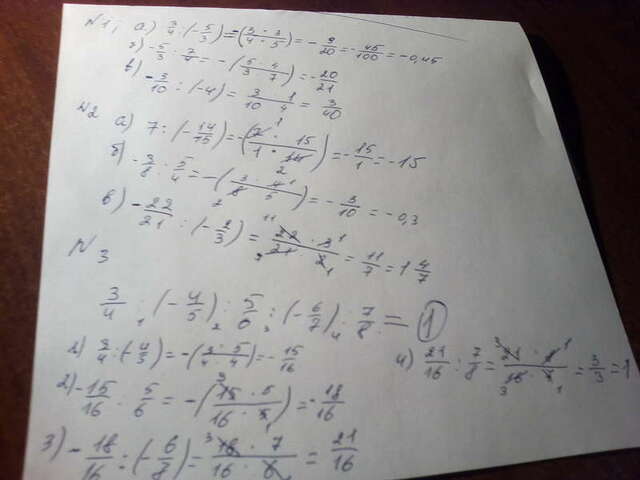 N1, а) 3/4 : (-5/3) = -(3 · 3 / 4 · 5) = -9/20 = -45/100 = -0,45
б) -5/3 : 7/4 = -(5 · 4 / 3 · 7) = -20/21
в) -3/10 : (-4) = 3/10 · 1/4 = 3/40
N2 а) 7 : (-14/15) = -(7 · 15 / 1 · 14) = -15/1 = -15
б) -3/8 : 5/4 = -(3 · 4 / 8 · 5) = -3/10 = -0,3
в) -22/21 : (-2/3) = 22 · 3 / 21 · 2 = 11/7 = 1 4/7
N3
3/4 : (-4/5) : 5/6 : (-6/7) : 7/8 = 1
1) 3/4 : (-4/5) = -(3 · 5 / 4 · 4) = -15/16
2) -15/16 : 5/6 = -(15 · 6 / 16 · 5) = -18/16
3) -18/16 : (-6/7) = 18 · 7 / 16 · 6 = 21/16
4) 21/16 : 7/8 = 21 · 8 / 16 · 7 = 3/3 = 1